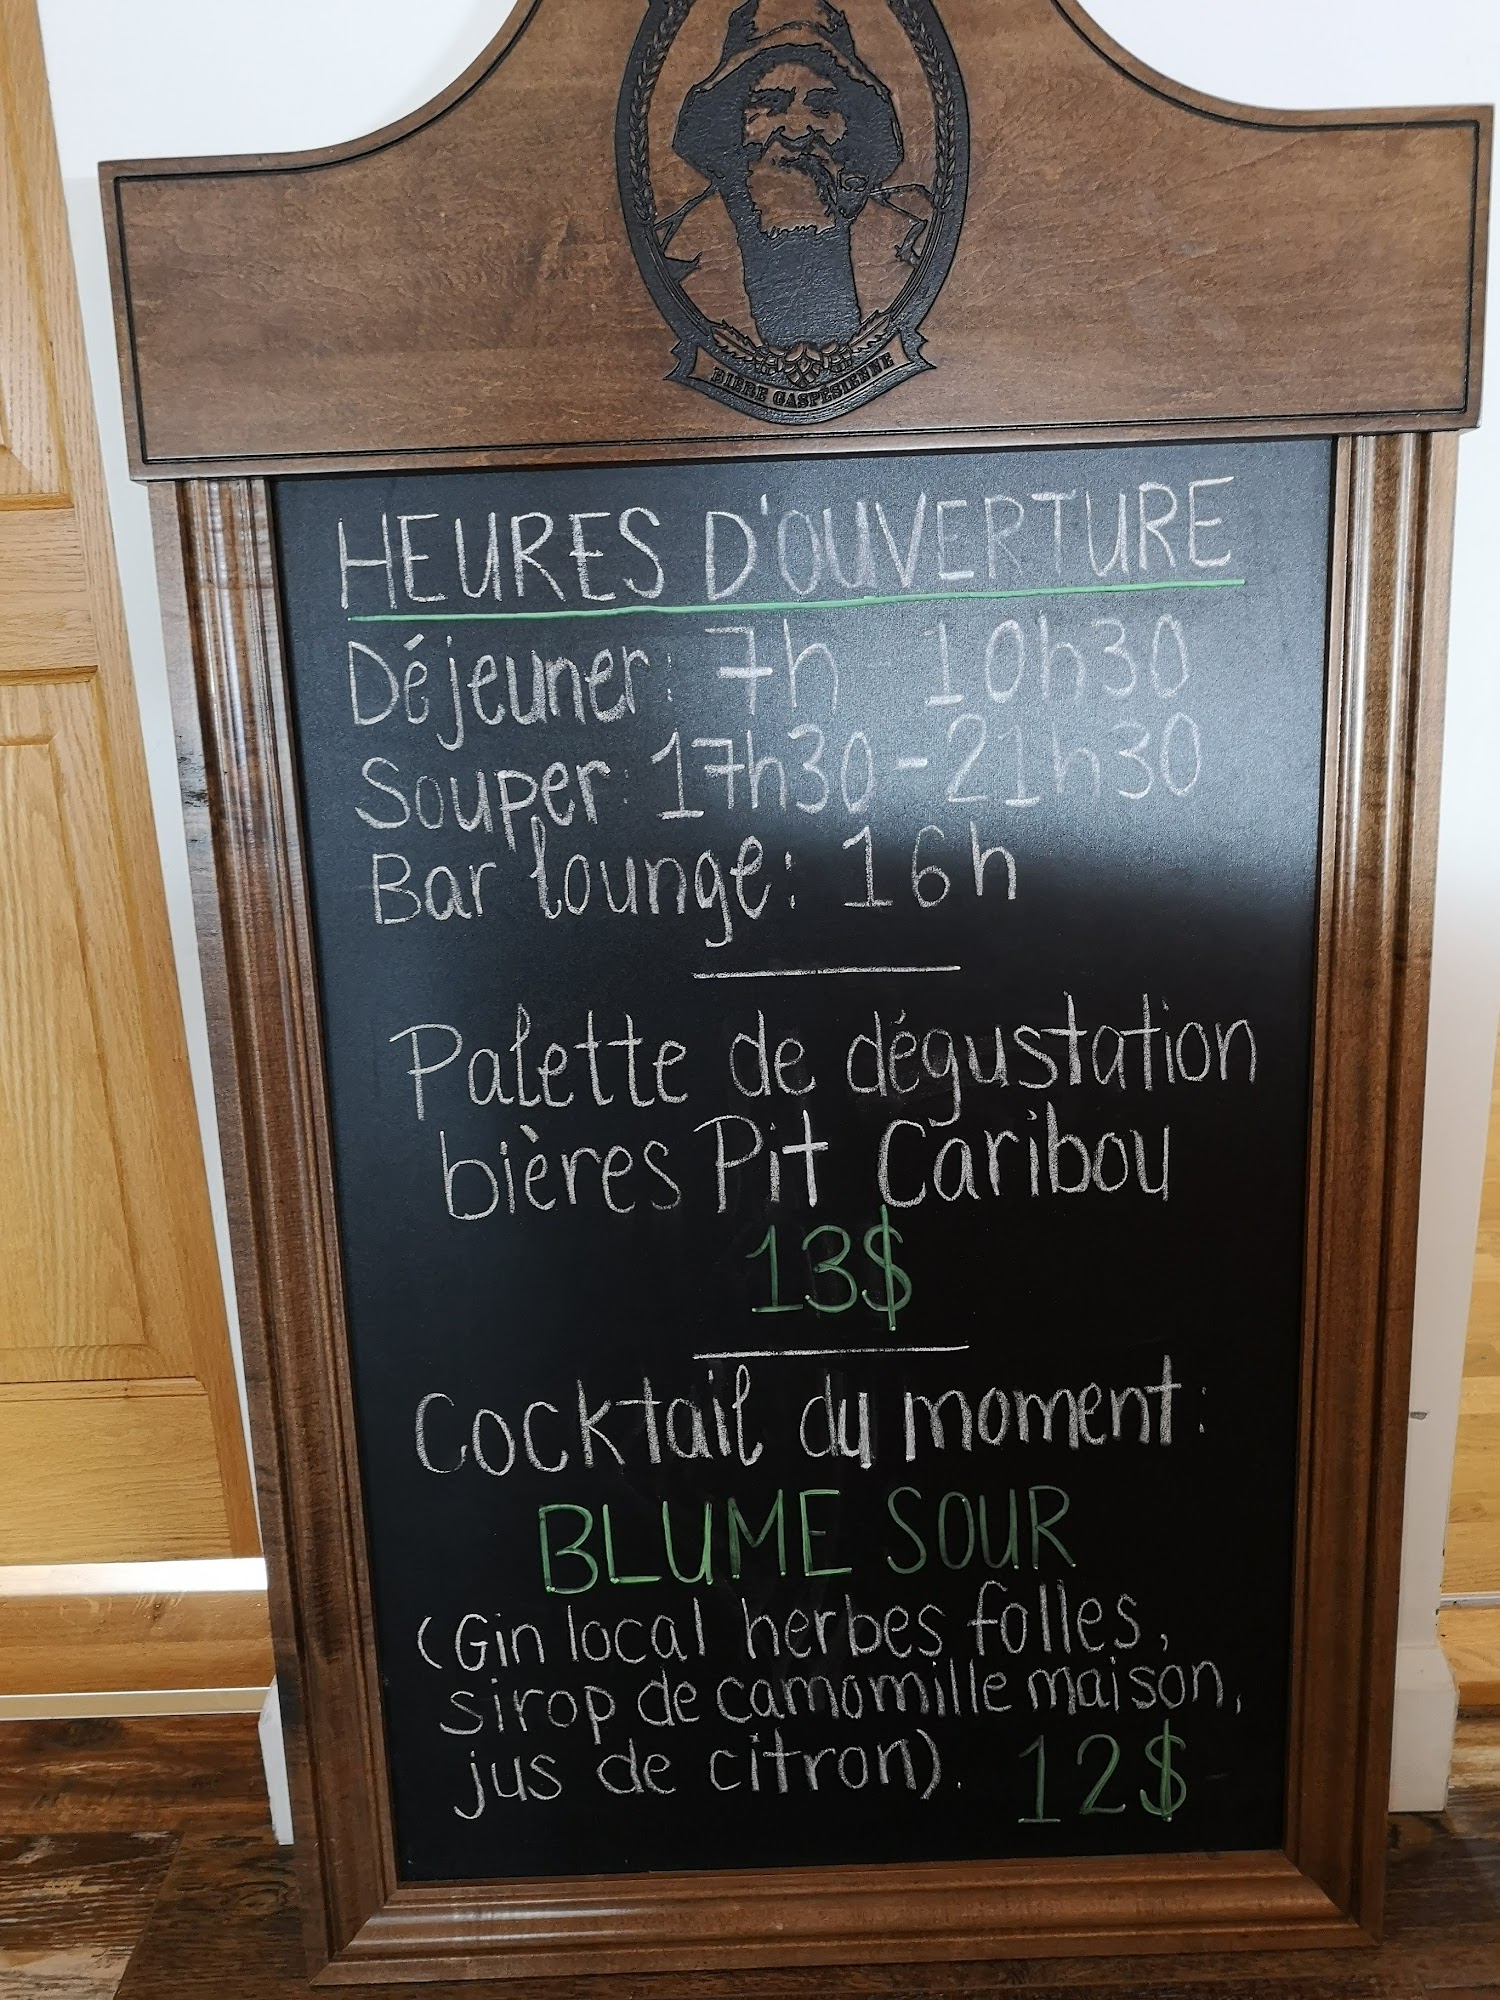 BIÈRE GASPÉSIENNE
HEURES D'OUVERTURE
Déjeuner: 7h 10h30
Souper: 17h30-21h30
Bar lounge: 16h
Palette de dégustation
bières Pit Caribou
13$
Cocktail du moment:
BLUME SOUR
(Gin local herbes folles,
sirop de camomille maison,
jus de citron). 12$